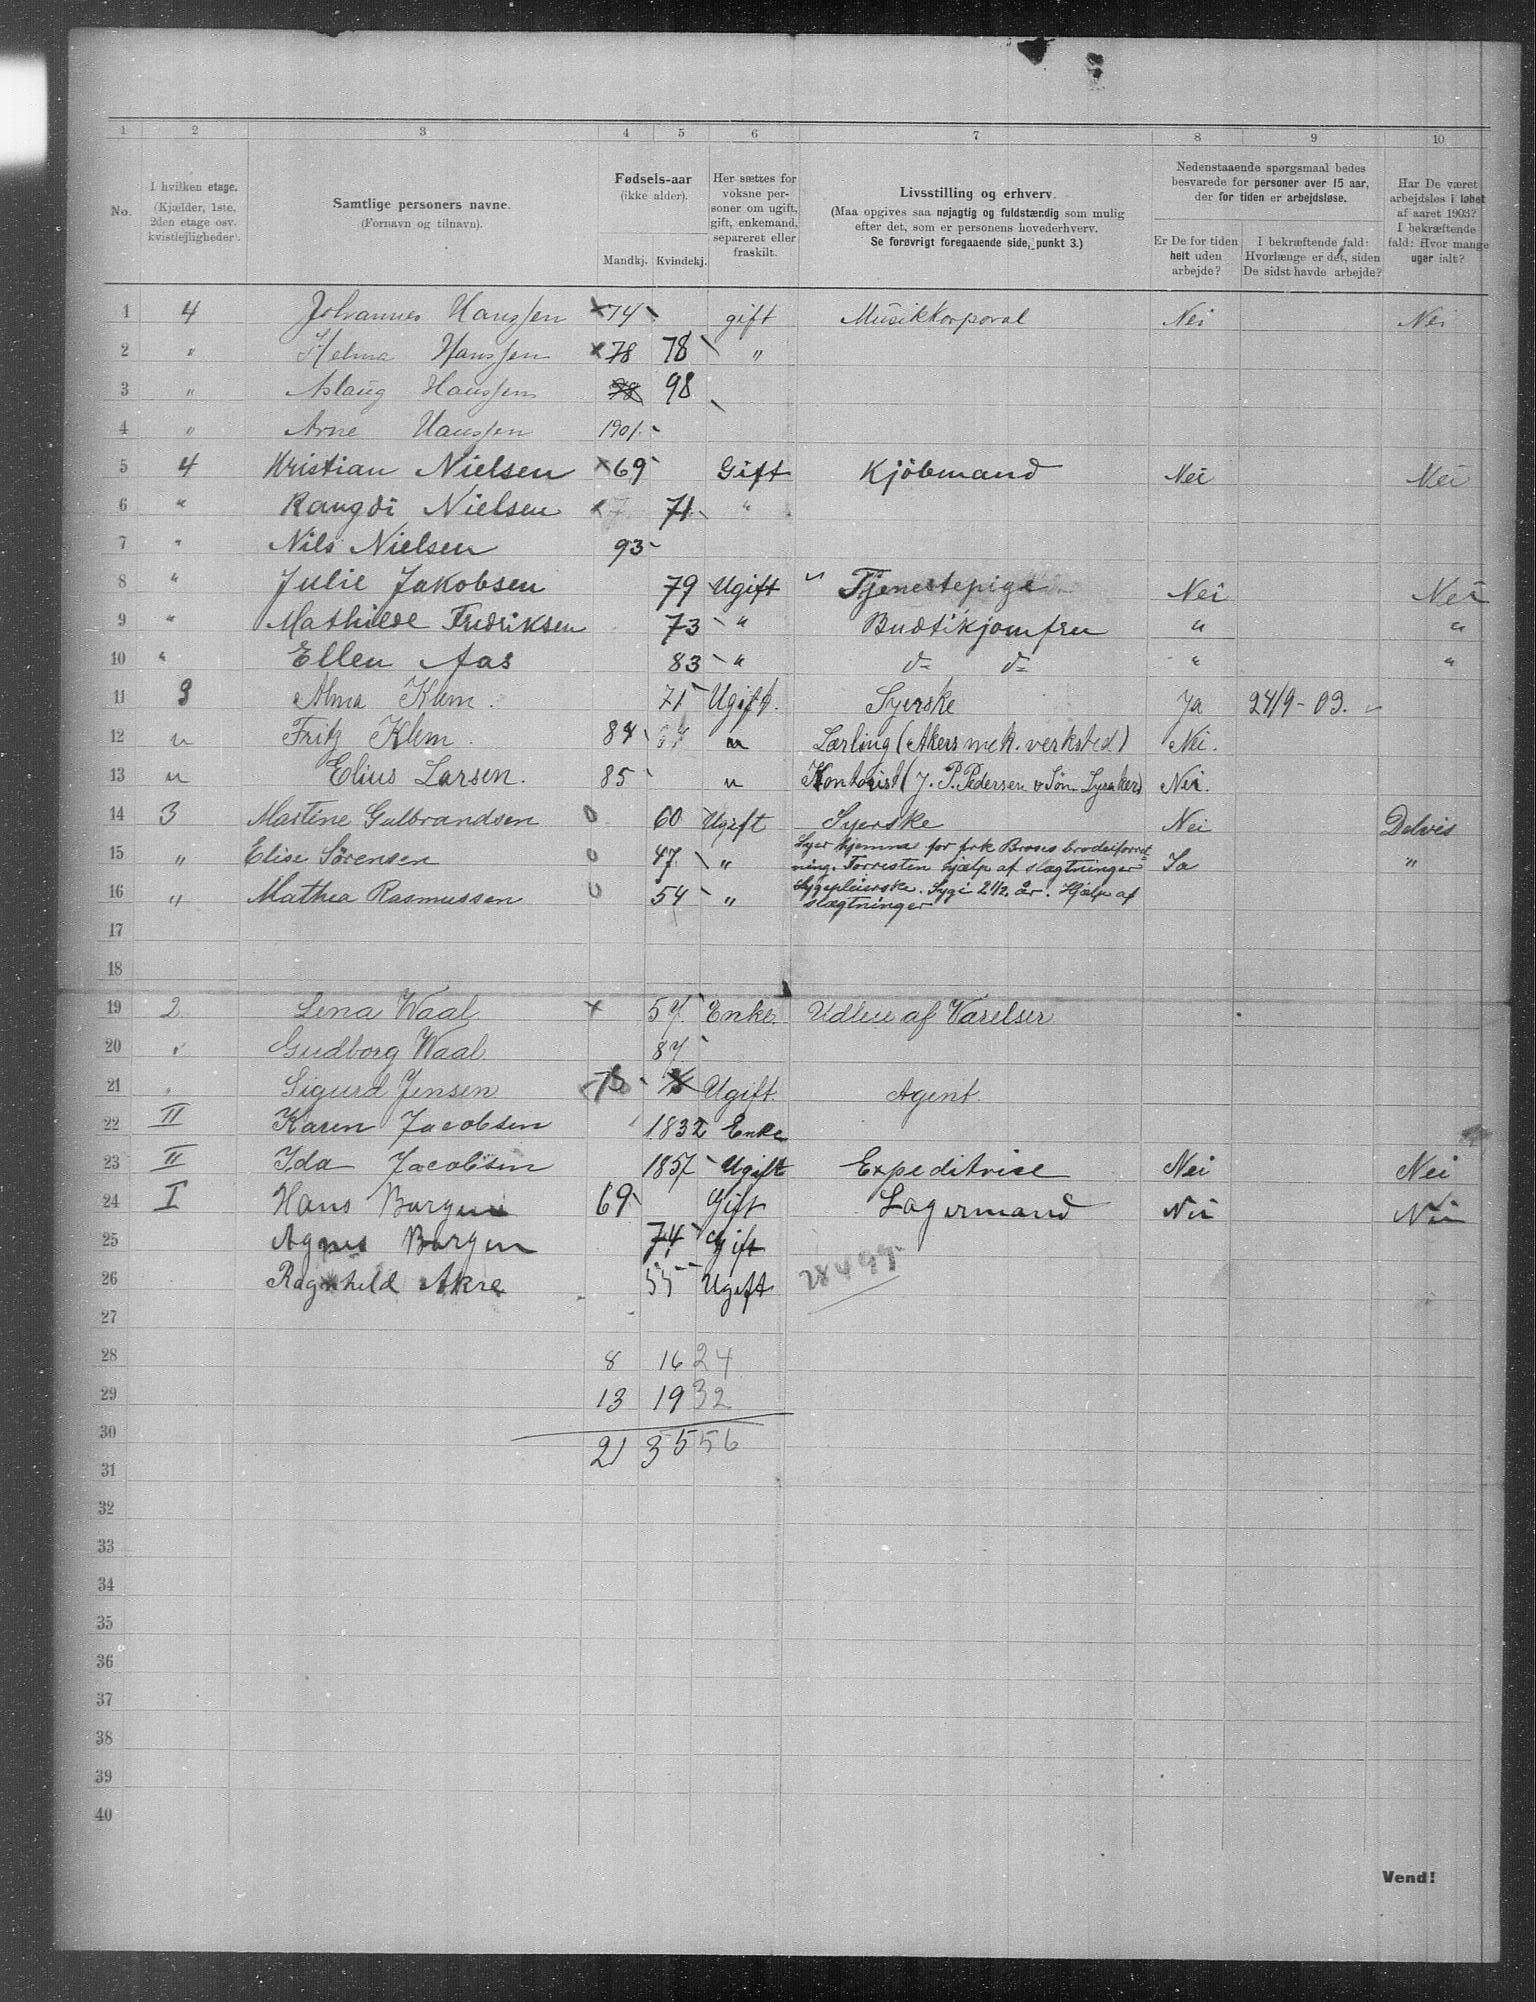 1 2 3 4 5 6 7 8 9 10
No.
I hvilken etage.
(Kjælder, 1ste, 2den etage osv. kvistlejligheder).
Samtlige personers navne.
(Fornavn og tilnavn).
Fødsels-aar
(ikke alder).
Mandkj. Kvindekj.
Her sættes for voksne personer om ugift, gift, enkemand, separeret eller fraskilt.
Livsstilling og erhverv.
(Maa opgives saa nøjagtig og fuldstændig som mulig efter det, som er personens hovederhverv.
Se forøvrigt foregaaende side, punkt 3.)
Nedenstaaende spørgsmaal bedes besvarede for personer over 15 aar, der for tiden er arbejdsløse.
Er De for tiden helt uden arbejde?
I bekræftende fald: Hvorlænge er det, siden De sidst havde arbejde?
Har De været arbejdsløs i løbet af aaret 1903? I bekræftende fald: Hvor mange uger ialt?
1 4 Johannes Hanssen × 74 gift Musikkorporal Nei Nei
2 " Helma Hanssen × 78 78 "
3 " Aslaug Hanssen 98 98
4 " Arne Hanssen 1901
5 4 Kristian Nielsen × 69 Gift Kjöbmand Nei Nei
6 " Rangdi Nielsen × 7 71 "
7 " Nils Nielsen 93
8 " Julie Jakobsen 79 Ugift Tjenestepige Nei Nei
9 " Mathilde Fredriksen 73 " Budtikjomfru " "
10 " Ellen Aas 83 " d= d= " "
11 3 Alma Klem. 71 Ugift. Syerske Ja 24/9-03.
12 " Fritz Klem. 84 " Lærling (Akers mek. verksted) Nei.
13 " Elius Larsen. 85 " Kontorist (J. P. Pedersen & Søn. Lysaker) Nei.
14 3 Martine Gulbrandsen 0 60 Ugift Syerske Nei Delvis
15 " Elise Sörensen 0 47 " Syer hjemme for frk Broses broderiforret-
ning. Forresten hjælp af slægtninger Ja "
16 " Mathea Rasmussen 0 54 " Sygepleierske. Syg i 2 1/2 år. Hjælp af
slægtninger
17
18
19 2 Lena Waal × 57 Enke. Udleie af Værelser
20 " Gudborg Waal 87
21 " Sigurd Jensen 78 Ugift. Agent.
22 II Karen Jacobsen 1832 Enke
23 II Ida Jacobsen 1857 Ugift Expeditrise Nei Nei
24 I Hans Borgen 69 Gift Lagermand Nei Nei
25 Agnes Borgen 74 Gift
26 Ragnhild Akre 55 Ugift 28499
27
28 8 16 24
29 13 19 32
30 21 35 56
31
32
33
34
35
36
37
38
39
40
Vend!